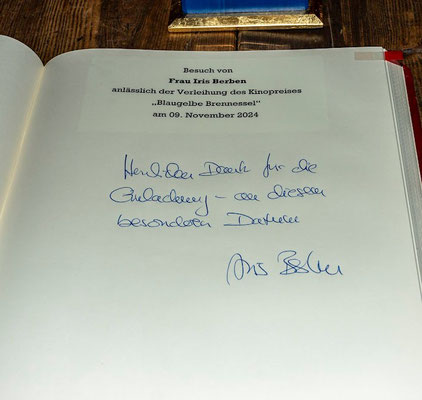 Besuch von
Frau Iris Berben
anlässlich der Verleihung des Kinopreises
„Blaugelbe Brennessel“
am 09. November 2024
Herzlichen Dank für die
Einladung – an diesem
besonderen Datum
Iris Berben